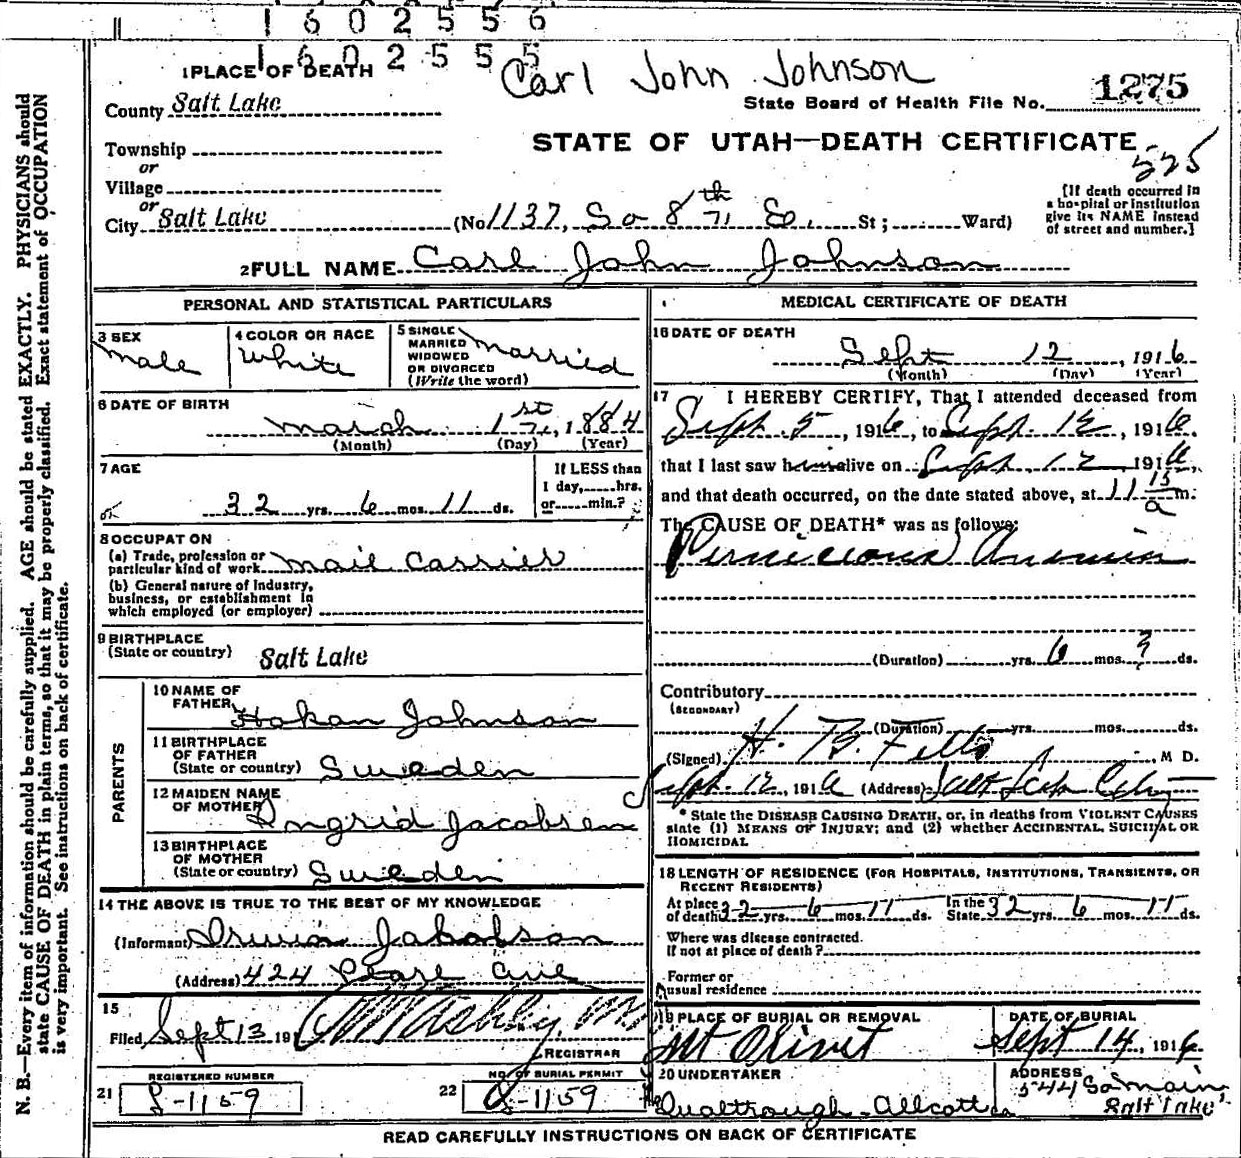 1602556
1602555
Carl John Johnson
1 PLACE OF DEATH
County Salt Lake
State Board of Health File No. 1275
Township
or
Village
or
City Salt Lake
STATE OF UTAH—DEATH CERTIFICATE
525
(No 1137, So 8th E. St; Ward)
[If death occurred in
a hospital or institution
give its NAME instead
of street and number.]
2 FULL NAME Carl John Johnson
PERSONAL AND STATISTICAL PARTICULARS
3 SEX
Male
4 COLOR OR RACE
White
5 SINGLE
MARRIED
WIDOWED
OR DIVORCED
(Write the word)
Married
6 DATE OF BIRTH
March 1st, 1884
(Month) (Day) (Year)
7 AGE
32 yrs. 6 mos. 11 ds.
If LESS than
1 day, hrs.
or min.?
8 OCCUPATION
(a) Trade, profession or
particular kind of work Mail Carrier
(b) General nature of industry,
business, or establishment in
which employed (or employer)
9 BIRTHPLACE
(State or country) Salt Lake
PARENTS
10 NAME OF
FATHER Hokan Johnson
11 BIRTHPLACE
OF FATHER
(State or country) Sweden
12 MAIDEN NAME
OF MOTHER Ingrid Jacobsen
13 BIRTHPLACE
OF MOTHER
(State or country) Sweden
14 THE ABOVE IS TRUE TO THE BEST OF MY KNOWLEDGE
(Informant) Jakobson
(Address) 424 Pearl Ave
15
Filed Sept 13 191 6 Ashby, M.
REGISTRAR
REGISTERED NUMBER
21 S-1159
NO. OF BURIAL PERMIT
22 S-1159
MEDICAL CERTIFICATE OF DEATH
16 DATE OF DEATH
Sept 12, 1916
(Month) (Day) (Year)
17 I HEREBY CERTIFY, That I attended deceased from
Sept. 5, 1916, to Sept. 12, 1916,
that I last saw him alive on Sept. 12, 1916,
and that death occurred, on the date stated above, at 11 15 a m.
The CAUSE OF DEATH* was as follows:
Pernicious Anemia
(Duration) yrs. 6 mos. ? ds.
Contributory
(SECONDARY)
(Duration) yrs. mos. ds.
(Signed) H. B. Felts, M D.
Sept. 12, 1916 (Address) Salt Lake City
* State the DISEASE CAUSING DEATH, or, in deaths from VIOLENT CAUSES
state (1) MEANS OF INJURY; and (2) whether ACCIDENTAL, SUICIDAL OR
HOMICIDAL
18 LENGTH OF RESIDENCE (FOR HOSPITALS, INSTITUTIONS, TRANSIENTS, OR
RECENT RESIDENTS)
At place
of death 32 yrs. 6 mos. 11 ds.
In the
State 32 yrs. 6 mos. 11 ds.
Where was disease contracted.
If not at place of death?
Former or
usual residence
19 PLACE OF BURIAL OR REMOVAL
Mt Olivet
DATE OF BURIAL
Sept 14, 1916
20 UNDERTAKER
Qualtrough-Allcott Co
ADDRESS
544 So Main
Salt Lake
READ CAREFULLY INSTRUCTIONS ON BACK OF CERTIFICATE
N. B.—Every item of information should be carefully supplied. AGE should be stated EXACTLY. PHYSICIANS should
state CAUSE OF DEATH in plain terms, so that it may be properly classified. Exact statement of OCCUPATION
is very important. See instructions on back of certificate.